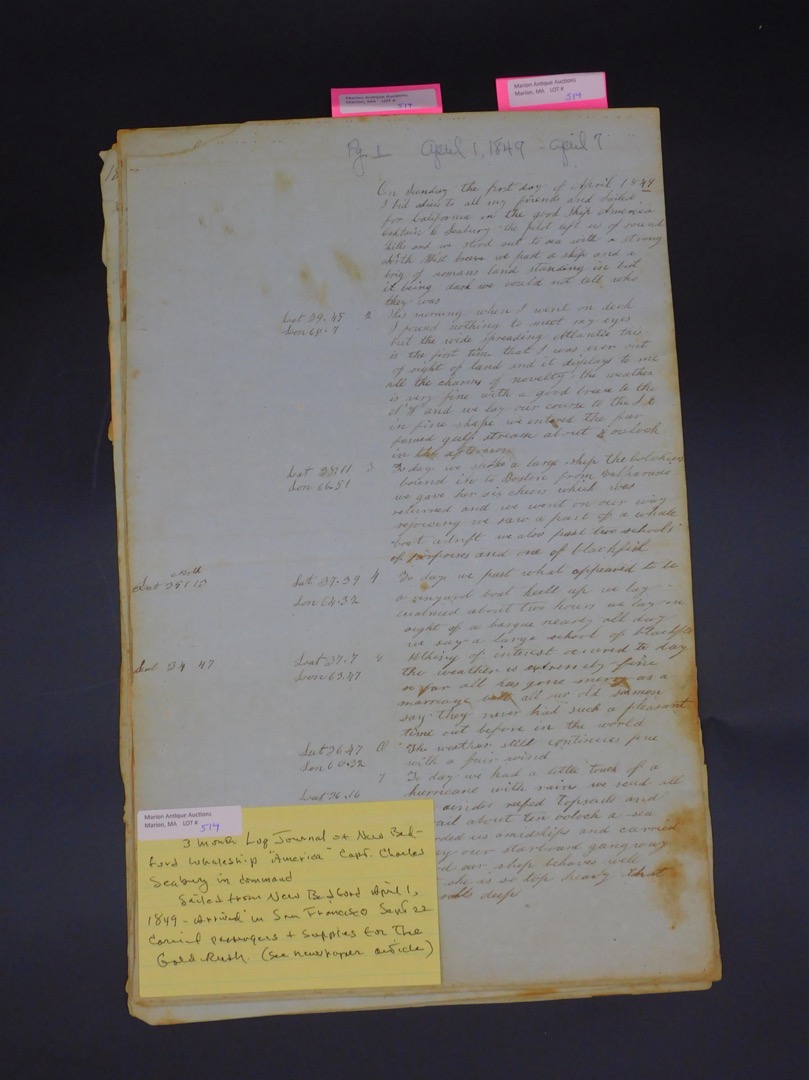 Marion Antique Auctions
Marion, MA LOT # 519
Marion Antique Auctions
Marion, MA LOT # 519
Pg 1 April 1, 1849 - April 7
On Sunday the first day of April 1849
I bid adieu to all my friends and sailed
for California in the good Ship America
Captain C Seabury the pilot left us of round
hills and we stood out to sea with a strong
North West breese we past a ship and a
brig of nomans land standing in but
it being dark we could not tell who
they was
Lat 39.45 2 This morning when I went on deck
Lon 68.7 I found nothing to meet my eyes
but the wide spreading Atlantic this
is the first time that I was ever out
of sight of land and it displays to me
all the charms of novelty the weather
is very fine with a good breese to the
N W and we lay our course to the S E
in fine shape we entered the far
famed gulf stream about oclock
in the afternoon
Lat 38.11 3 To day we spoke a large ship the
Lon 66.51 bound in to Boston from
we gave her six cheers which was
returned and we went on our way
rejoicing we saw a part of a whale
boat adrift we also past two schools
of porpoises and one of blackfish
Lat 37.39 4 To day we past what appeared to be
Lon 64.32 a vinyard boat keell up we lay
becalmed about two hours we lay in
sight of a barque nearly all day
we saw a large school of blackfish
Lat 34 47
Lat 37.7 Nothing of interest occured to day
Lon 63.47 the weather is extremely fine
so far all has gone merry as a
marriage bell all our old seamen
say they never had such a pleasant
time out before in the world
Lat 36.47 The weather still continues fine
Lon 60.32 with a fair wind
7 To day we had a little touch of a
Lat 36.16 hurricane with rain we scud all
under reefed Topsails and
about ten oclock a sea
us amidships and carried
our starboard gangway
our ship behaves well
she is so top heavy that
deep
Marion Antique Auctions
Marion, MA LOT # 519
3 month Log Journal of New Bed-
ford Whaleship "America" Capt. Charles
Seabury in command
Sailed from New Bedford April 1,
1849 - Arrived in San Francisco Sept 22
Carried passengers + supplies for the
Gold Rush. (See newspaper article)